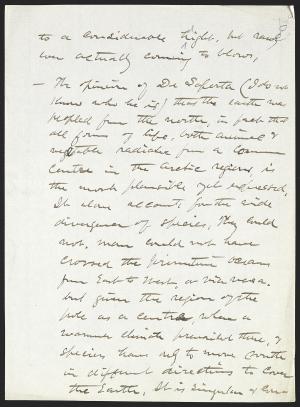 to a considerable hight, but rarely
ever actually coming to blows,
— The opinion of De Saporta (I do not
know who he is) that the earth was
peopled from the north, in fact that
all forms of life, both animal &
vegetable radiate from a common
centre in the arctic regions, is
the most plausible yet expressed.
It alone accounts for the wide
divergence of species. They could
not, man could not have
crossed the primitive oceans
from East to West, or vice versa.
but given the region of the
pole as a centre, when a
warmer climate prevailed there, &
species have only to move south
in different directions to cover
the Earth. It is singular